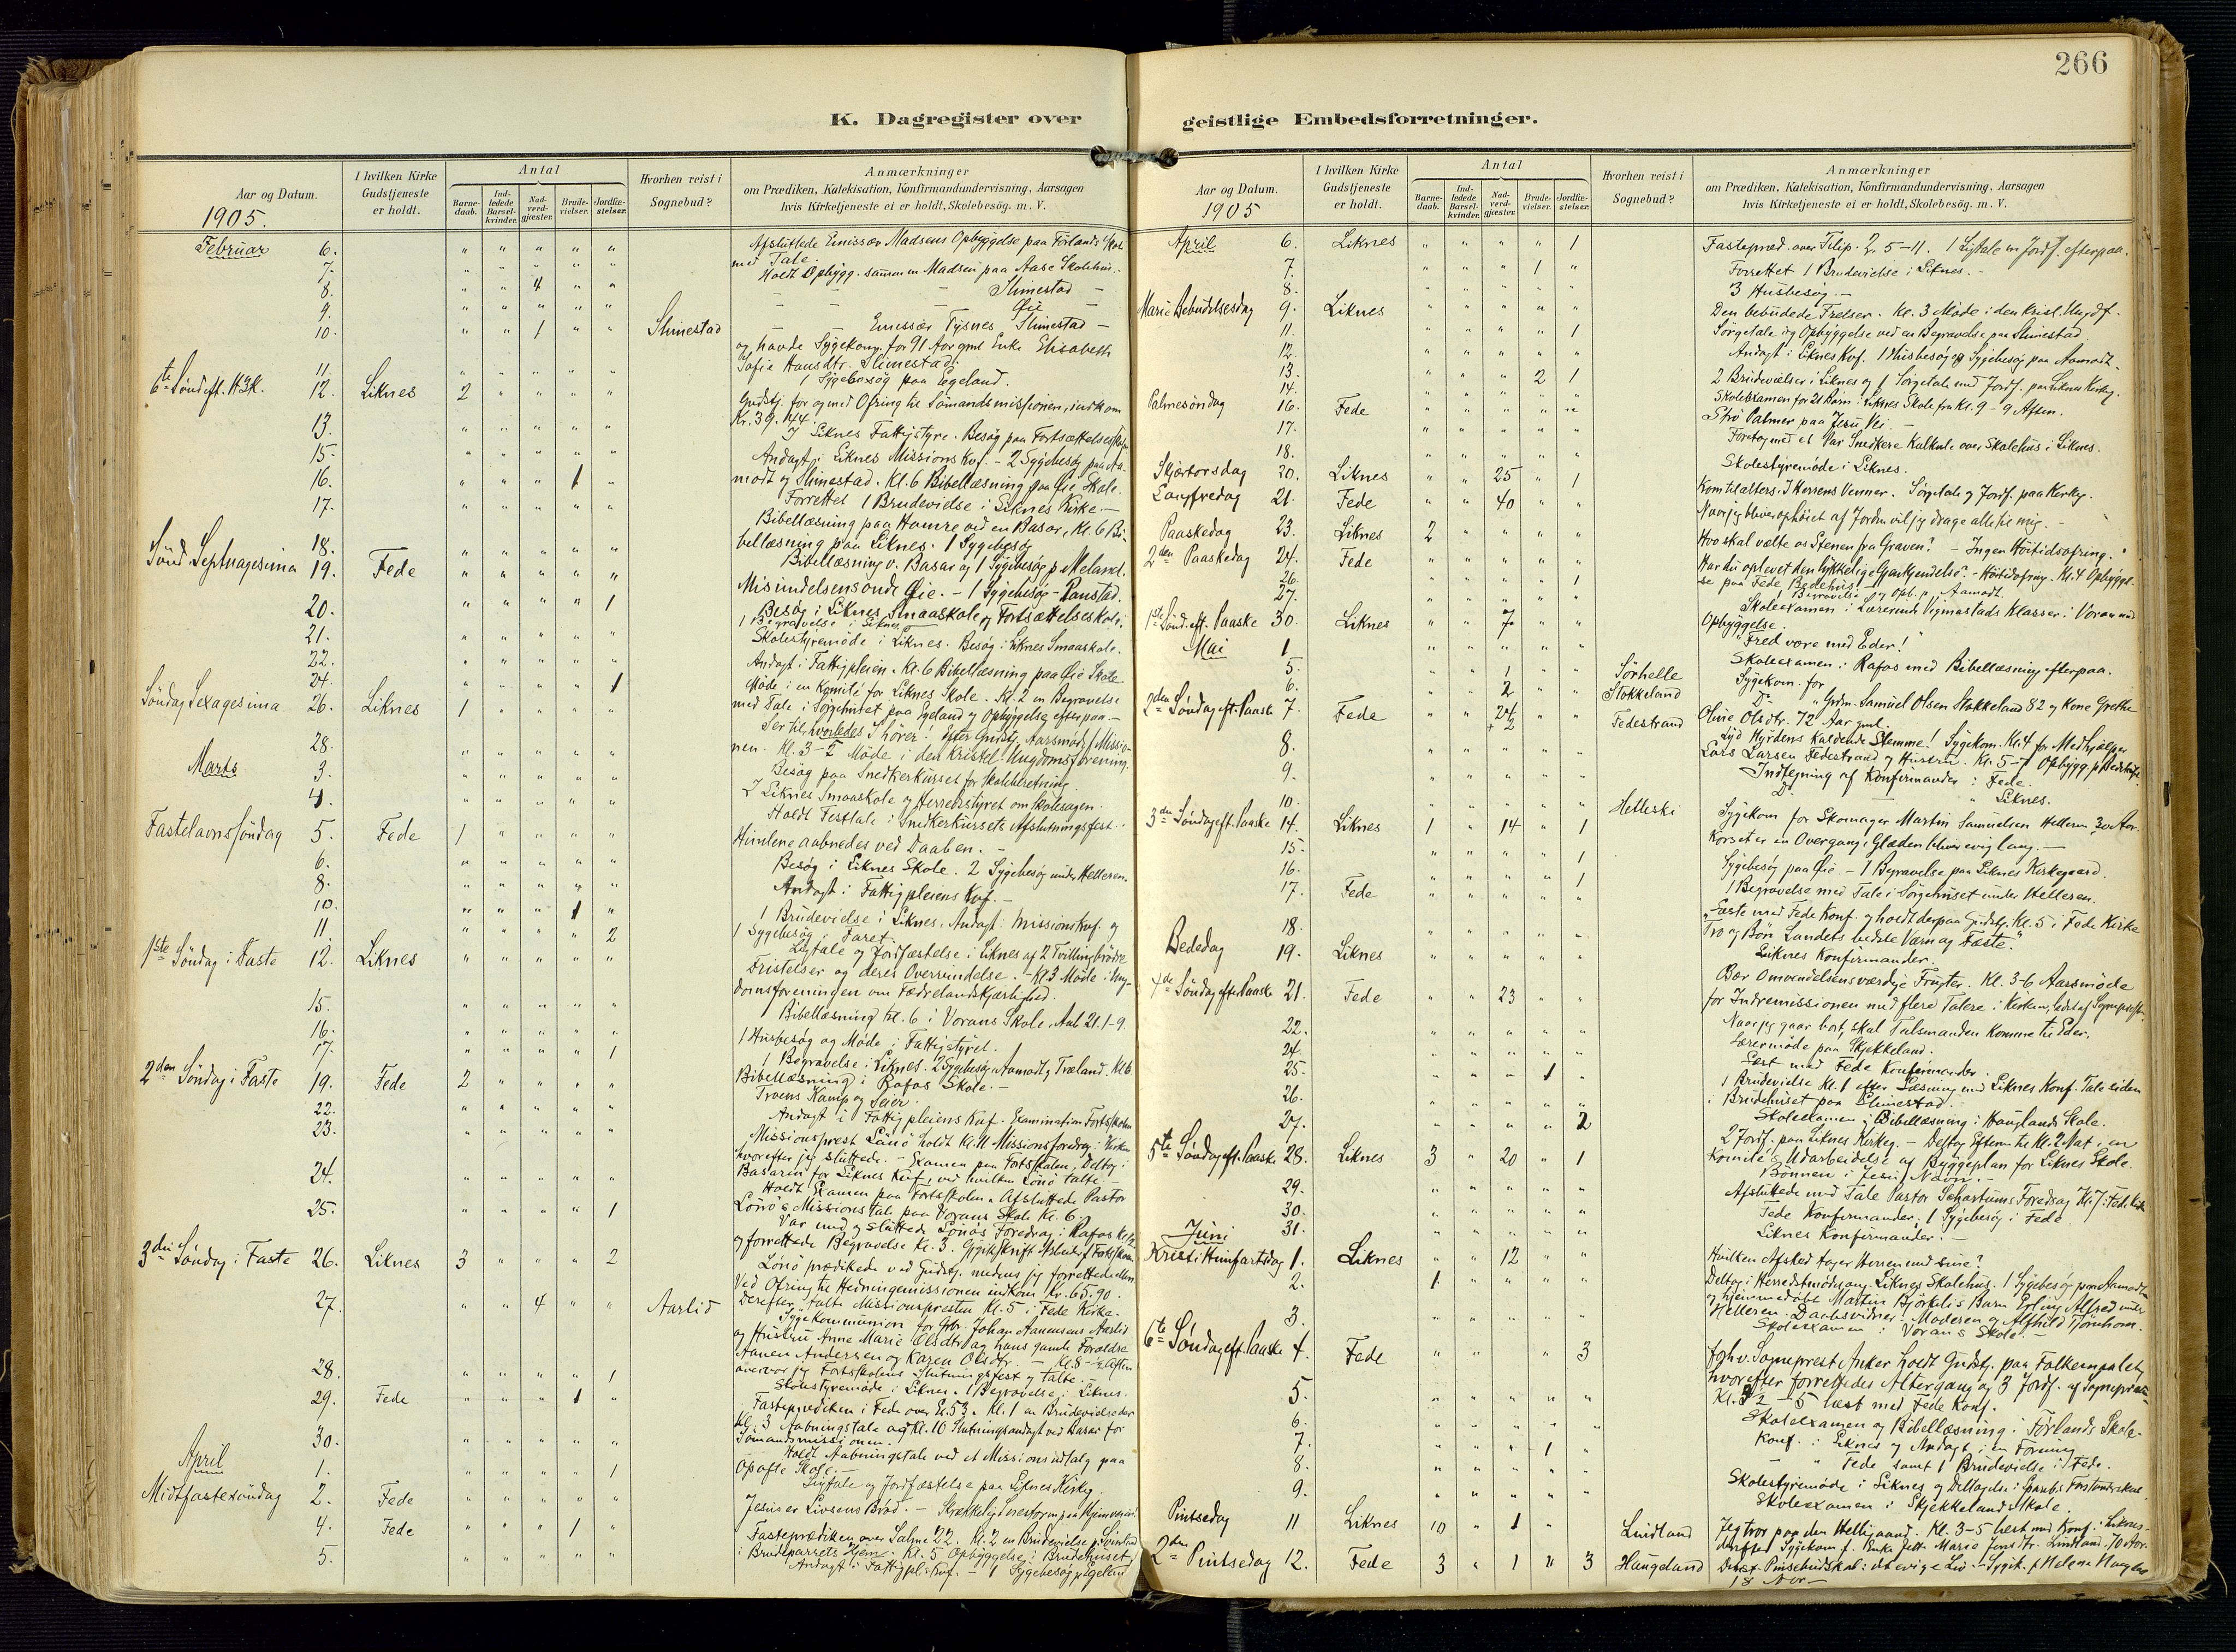 266
K. Dagregister over
geistlige Embedsforretninger.
Aar og Datum.
1905.
I hvilken Kirke Gudstjeneste er holdt.
Antal
Barne-daab.
Ind-ledede Barsel-kvinder.
Nad-verd-gjæster.
Brude-vielser.
Jordfæ-stelser.
Hvorhen reist i Sognebud?
Anmærkninger
om Prædiken, Katekisation, Konfirmandundervisning, Aarsagen
hvis Kirketjeneste ei er holdt, Skolebesög. m. V.
Februar 6. " " " " " Afsluttede Emissær Madsens Opbyggelse paa Förlands Skole
med Tale.
7. " " " " " Holdt Opbygg. sammen Madsen paa Aase Skolehus.
8. " " 4 " " Slimestad
9. " " " " " Öie
10. " " 1 " " Slimestad Emissær Tysnes Slimestad
og havde Sygekom. for 91 Aar gml Enke Elisabeth
Sofie Hansdtr. Slimestad.
11. " " " " " 1 Sygebesög paa Egeland.
6te Sönd. eft. H3K. 12. Liknes 2 " " " " Gudstj. for og med Ofring til Sömandsmissionen, indkom
Kr. 39.44
13. " " " " " I Liknes Fattigstyre. Besög paa Fortsættelsesskolen
15. " " " " " Andagt i Liknes Missions Kvf. - 2 Sygebesög paa Aa-
modt og Slimestad. Kl. 6 Bibellæsning paa Öie Skole.
16. " " " 1 " Forrettet 1 Brudevielse i Liknes Kirke.
17. " " " " " Bibellæsning paa Hamre ved en Basar, Kl. 6 Bi-
bellæsning paa Liknes. 1 Sygebesög
18. " " " " " Bibellæsning v. Basar og 1 Sygebesög p. Meland.
Sönd. Septuagesima 19. Fede " " " " " Misundelsens onde Öie. - 1 Sygebesög - Ranstad.
20. " " " " 1 Besög i Liknes Smaaskole og Fortsættelsesskole.
1 Begravelse i Liknes
21. " " " " " Skolestyremöde i Liknes. Besög i Liknes Smaaskole.
22. " " " " " Andagt i Fattigpleien. Kl. 6 Bibellæsning paa Öie Skole
24. " " " " 1 Möde i en Komité for Liknes Skole. Kl. 2 en Begravelse
med Tale i Sörgehuset paa Egeland og Opbyggelse efterpaa.
Söndag Sexagesima 26. Liknes 1 " " " " Ser til, hvorledes I hörer! Efter Gudstj. Aarsmöde f. Missio-
nen. Kl. 3 Möde i den Kristel. Ungdomsforening.
28. " " " " " Besög paa Snedkerkurset for Skoleberetning.
Marts 3. " " " " " I Liknes Smaaskole og Herredsstyret om Skolesagen.
4. " " " " " Holdt Festtale i Snedkerkursets Afslutningsfest.
Fastelavnssöndag 5. Fede 1 " " " " Himlene aabnedes ved Daaben.
6. " " " " " Besög i Liknes Skole. 2 Sygebesög under Helleren.
8. " " " " " Andagt i Fattigpleiens Kvf.
10. " " " 1 " 1 Brudevielse i Liknes. Andagt i Missions Kvf. og
1 Sygebesög i Faret.
11 " " " " 2 Ligtale og Jordfæstelse i Liknes af 2 Tvillingbrödre
1ste Söndag i Faste 12. Liknes " " " " " Fristelser og deres Overvindelse. - Kl 3 Möde i Ung-
domsforeningen om Fædrelandskjærlighed.
15. " " " " " Bibellæsning Kl. 6 i Vorans Skole. Aab 21. 1-9
16. " " " " " 1 Husbesög og Möde i Fattigstyret.
17. " " " " 1 1 Begravelse i Liknes. 2 Sygebesög i Aamodt og Træland. Kl 6
Bibellæsning i Rafos Skole.
2den Söndag i Faste 19. Fede 2 " " " " Troens Kamp og Seier.
22. " " " " " Andagt i Fattigpleiens Kvf. Examination Fortsskolen
23. " " " " " Missionsprest Lönö holdt Kl. 11 Missionsforedrag i Kirken
hvorefter jeg sluttede. - Examen paa Fortsskolen, Deltog i
Basaren for Liknes Kvf, ved hvilken Lönö talte
24. " " " " " Holdt Examen paa Fortsskolen. Afsluttede Pastor
Lönö's Missionstale paa Vorans Skole Kl. 6.
25. " " " " 1 Var med og sluttede Lönös Foredrag i Rafos
og forrettede Begravelse Kl. 3.
3die Söndag i Faste 26. Liknes 3 " " " 2 Lönö prædikede ved Gudstj. medens jeg forrettede
Ved Ofring til Hedningemissionen indkom Kr. 65.90.
Derefter talte Missionspresten Kl. 5 i Fede Kirke.
27. " " 4 " " Aarlid Sygekommunion for Grb. Johan Aanensens Aarlid
og Hustru Anne Marie Olsdtr og hans gamle Forældre
Aanen Andersen og Karen Olsdtr.
overvar jeg Fortsskolens Slutningsfest og talte.
28. " " " " 1 Skolestyremöde i Liknes. 1 Begravelse i Liknes.
29. Fede " " " 1 " Fasteprædiken i Fede over Es. 53. Kl. 1 en Brudevielse der
Kl. 3 Aabningstale og Kl. 10 Slutningsandagt ved Basar for
Sömandsmissionen.
30. " " " " " Holdt Aabningstale ved et Missionsudsalg paa
Opofte Skole.
April 1. " " " " 1 Ligtale og Jordfæstelse paa Liknes Kirkeg.
Midtfastesöndag 2. Fede " " " " " Jesus er Livsens Bröd.
4. Fede " " " 1 " Fasteprædiken over Salme 22. Kl. 2 en Brudevielse
i Brudeparrets Hjem. Kl. 5 Opbyggelse i Brudehuset
5. " " " " " Andagt i Fattigpl. Kvf. - 1 Sygebesög p. Egeland
Aar og Datum.
1905
I hvilken Kirke Gudstjeneste er holdt.
Antal
Barne-daab.
Ind-ledede Barsel-kvinder.
Nad-verd-gjæster.
Brude-vielser.
Jordfæ-stelser.
Hvorhen reist i Sognebud?
Anmærkninger
om Prædiken, Katekisation, Konfirmandundervisning, Aarsagen
hvis Kirketjeneste ei er holdt, Skolebesög. m. V.
April 6. Liknes " " " " 1 Fastepræd. over Filip. 2, 5-11. 1 Ligtale m Jordf. efterpaa.
7. " " " 1 " Forrettet 1 Brudevielse i Liknes.
8. " " " " " 3 Husbesög.
Mariæ Bebudelsesdag 9. Liknes " " " " " Den bebudede Frelser. Kl. 3 Möde i den Kristl. Ungdf.
11. " " " " 1 Sörgetale og Opbyggelse ved en Begravelse paa Slimestad.
12. " " " " " Andagt i Liknes Kvf. 1 Husbesög og Sygebesög paa Aamodt.
13. " " " 2 1 2 Brudevielser i Liknes og 1 Sörgetale med Jordf. paa Liknes Kirkeg.
14. " " " " " Skolexamen for 21 Barn i Liknes Skole fra Kl. 9-9 Aften.
Palmesöndag 16. Fede " " " " " Strö Palmer paa Jesu Vei.
17. " " " " " Foretog med et Par Snedkere Kalkule over Skolehus i Liknes.
18. " " " " " Skolestyremöde i Liknes.
Skjærtorsdag 20. Liknes " " 25 " 1 Kom til Alters, I Herrens Venner. Sörgetale og Jordf. paa Kirkeg.
Langfredag 21. Fede " " 40 " " Naar jeg bliver ophöiet af Jorden vil jeg drage alle til mig.
Paaskedag 23. Liknes 2 " " " " Hvo skal vælte os Stenen fra Graven? - Ingen Höitidsofring.
2den Paaskedag 24. Fede " " " " " Har du oplevet den lykkelige Gjenkjendelse? - Höitidsofring. Kl. 4 Opbyggel-
se paa Fede Bedehus
26. " " " " 1 1 Begravelse og Opb. p. Aamodt.
27. " " " " " Skolexamen i Lærerinde Vigmostads Klasser i Voran med
Opbyggelse.
1ste Sönd. eft. Paaske 30. Liknes " " 7 " " "Fred være med Eder!"
Mai 1 " " " " " Skolexamen i Rafos med Bibellæsning efterpaa.
5. " " 1 " " Sörhelle Sygekom. for
6. " " 2 " " Stokkeland Do " Grdm. Samuel Olsen Stokkeland 82 og Kone Grethe
Oline Olsdtr. 72 Aar gml.
2den Söndag eft. Paaske 7. Fede " " 24 + 2 " " Fedestrand Lyd Hyrdens kaldende Stemme! Sygekom. Kl. 4 for Medhjælper
Lars Larsen Fedestrand og Hustru. Kl. 5-7 Opbygg. p. Bedehuset
8. " " " " " Indtegning af Konfirmander i Fede.
9. " " " " " Do " Liknes.
10. " " " " " Helleski Sygekom for Skomager Martin Samuelsen Helleren, 30 Aar.
3die Söndag eft. Paaske 14. Liknes 1 " 14 " 1 Korset er en Overgang, Glæden bliver evig lang.
15. " " " " 1 Sygebesög paa Öie. - 1 Begravelse paa Liknes Kirkegaard.
16. " " " " 1 1 Begravelse med Tale i Sörgehuset under Helleren.
17. Fede " " " " " Læste med Fede Konf. og holdt derpaa Gudstj. Kl. 5 i Fede Kirke
"Tro og Bön Landets bedste Værn og Fæste".
18. " " " " " Liknes Konfirmander.
Bededag 19. Liknes " " " " " Bær Omvendelsens værdige Frugter. Kl. 3-6 Aarsmöde
for Indremissionen med flere Talere i Kirken, ledet af Sognepresten.
4de Söndag eft. Paaske 21. Fede " " 23 " " Naar jeg gaar bort, skal Talsmanden komme til Eder.
22. " " " " " Læremöde paa Skjekkeland.
24. " " " " " Læst med Fede Konfirmander.
25. " " " 1 " 1 Brudevielse Kl. 1 efter Læsning med Liknes Konf. Tale siden
i Brudehuset paa Slimestad.
26. " " " " " Skolexamen og Bibellæsning i Hauglands Skole.
27. " " " " 2 2 Jordf. paa Liknes Kirkeg. - Deltog Efterm. til Kl. 2 Nat i en
Komité's Udarbeidelse af Byggeplan for Liknes Skole.
5te Söndag eft. Paaske 28. Liknes 3 " 20 " 1 Bönnen i Jesu Navn.
29. " " " " " Afsluttede med Tale Pastor Foredrag Kl. 7 i Fede Kirke
30. " " " " " Fede Konfirmander. 1 Sygebesög i Fede.
31. " " " " " Liknes Konfirmander.
Juni
Kristi Himfartsdag 1. Liknes " " 12 " " Hvilken Afsked tager Herren med sine?
2. 1 " " " " Deltog i Herredsmöde ang. Liknes Skolehus. 1 Sygebesög paa Aamodt
og hjemmedöbt Martin Björkelis Barn Erling Alfred under
Helleren. Daabsvidner: Madesen og Alfhild Tjörnhom.
3. " " " " " Skolexamen i Vorans Skole.
6te Söndag eft. Paaske 4. Fede " " " " 3 fghv. Sogneprest Anker holdt Gudstj. paa Folkemaalet,
hvorefter forrettedes Altergang og 3 Jordf. af Sognepresten
Kl. 3½-5 læst med Fede Konf.
5. " " " " " Skolexamen og Bibellæsning i Förlands Skole.
6. " " " " " Konf. i Liknes og Andagt i en Forening
7. " " " 1 " " Fede samt 1 Brudevielse i Fede.
8. " " " " " Skolestyremöde i Liknes og Deltagelse i Sparebs. Forstanderskab
9. " " " " " Skolexamen i Skjekkelands Skole.
Pintsedag 11 Liknes 10 " 1 " Lindland Jeg tror paa den Helligaand. Kl. 3-5 læst med Konf. i Liknes
derefter Sygekom f. Enke Marie Jensdtr. Lindland, 70 Aar.
2den Pintsedag 12. Fede 3 " 1 " 3 Haugeland Pinsebudskab: det evige Liv. - Sygek. f. Helena
18 Aar